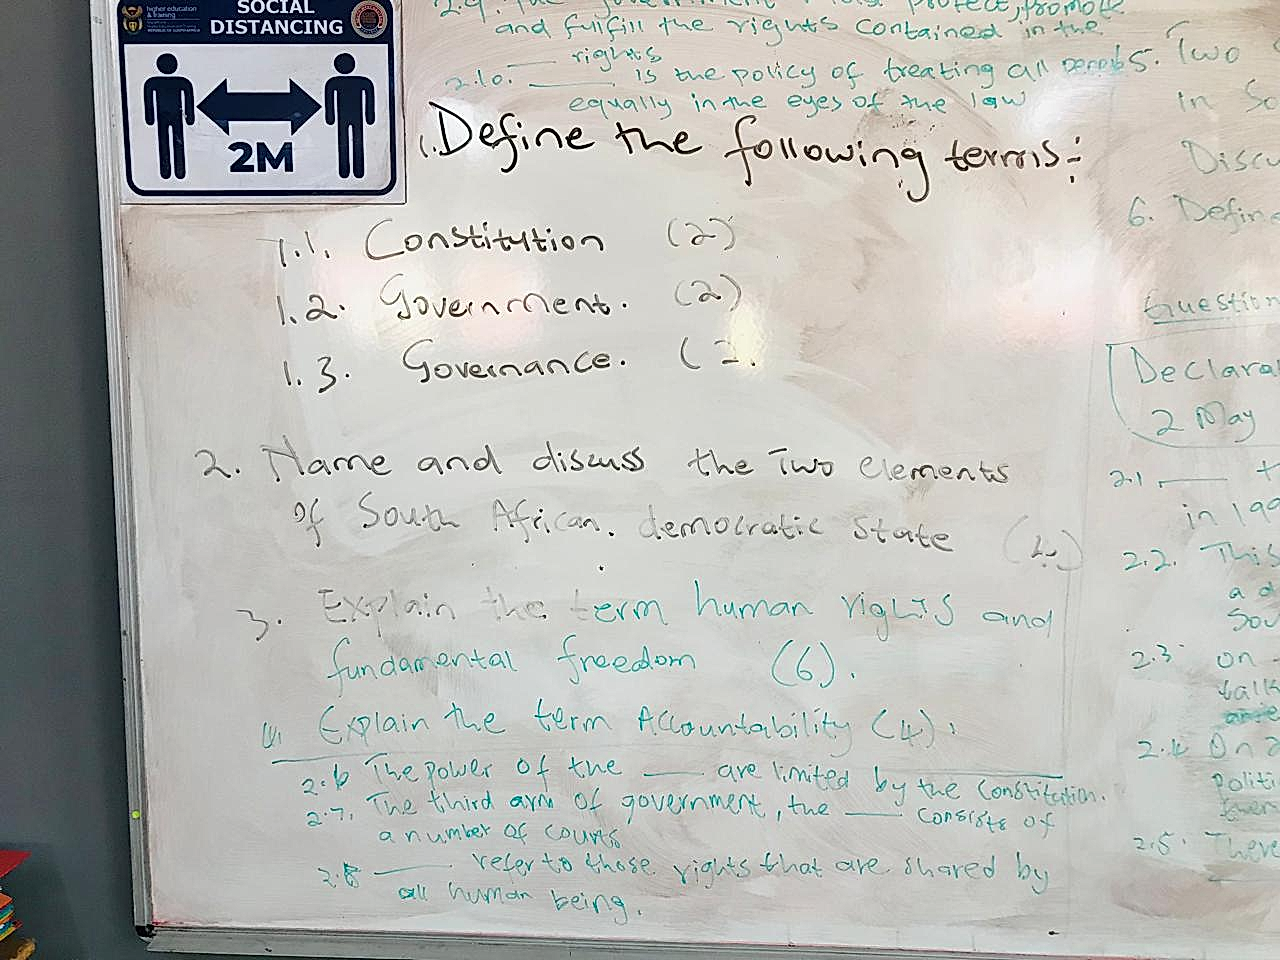 higher education
& training
REPUBLIC OF SOUTH AFRICA
SOCIAL
DISTANCING
2M
2.9. The government must protect, promote
and fulfill the rights contained in the
rights
2.10. ____ is the policy of treating all people
equally in the eyes of the law
1. Define the following terms:-
1.1. Constitution (2)
1.2. Government. (2)
1.3. Governance. (2.
2. Name and discuss the Two elements
of South African. democratic state
3. Explain the term human rights and
fundamental freedom (6).
4. Explain the term Accountability (4).
2.6 The power of the ____ are limited by the constitution.
2.7. The third arm of government, the ____ consists of
a number of courts
2.8 ____ refer to those rights that are shared by
all human being.
5. Two
in So
Discu
6. Define
Question
Declara
2 May
2.1 ____ t
in 199
2.2. This
a d
Sou
2.3 on
talk
2.4 On 2
politi
2.5. There